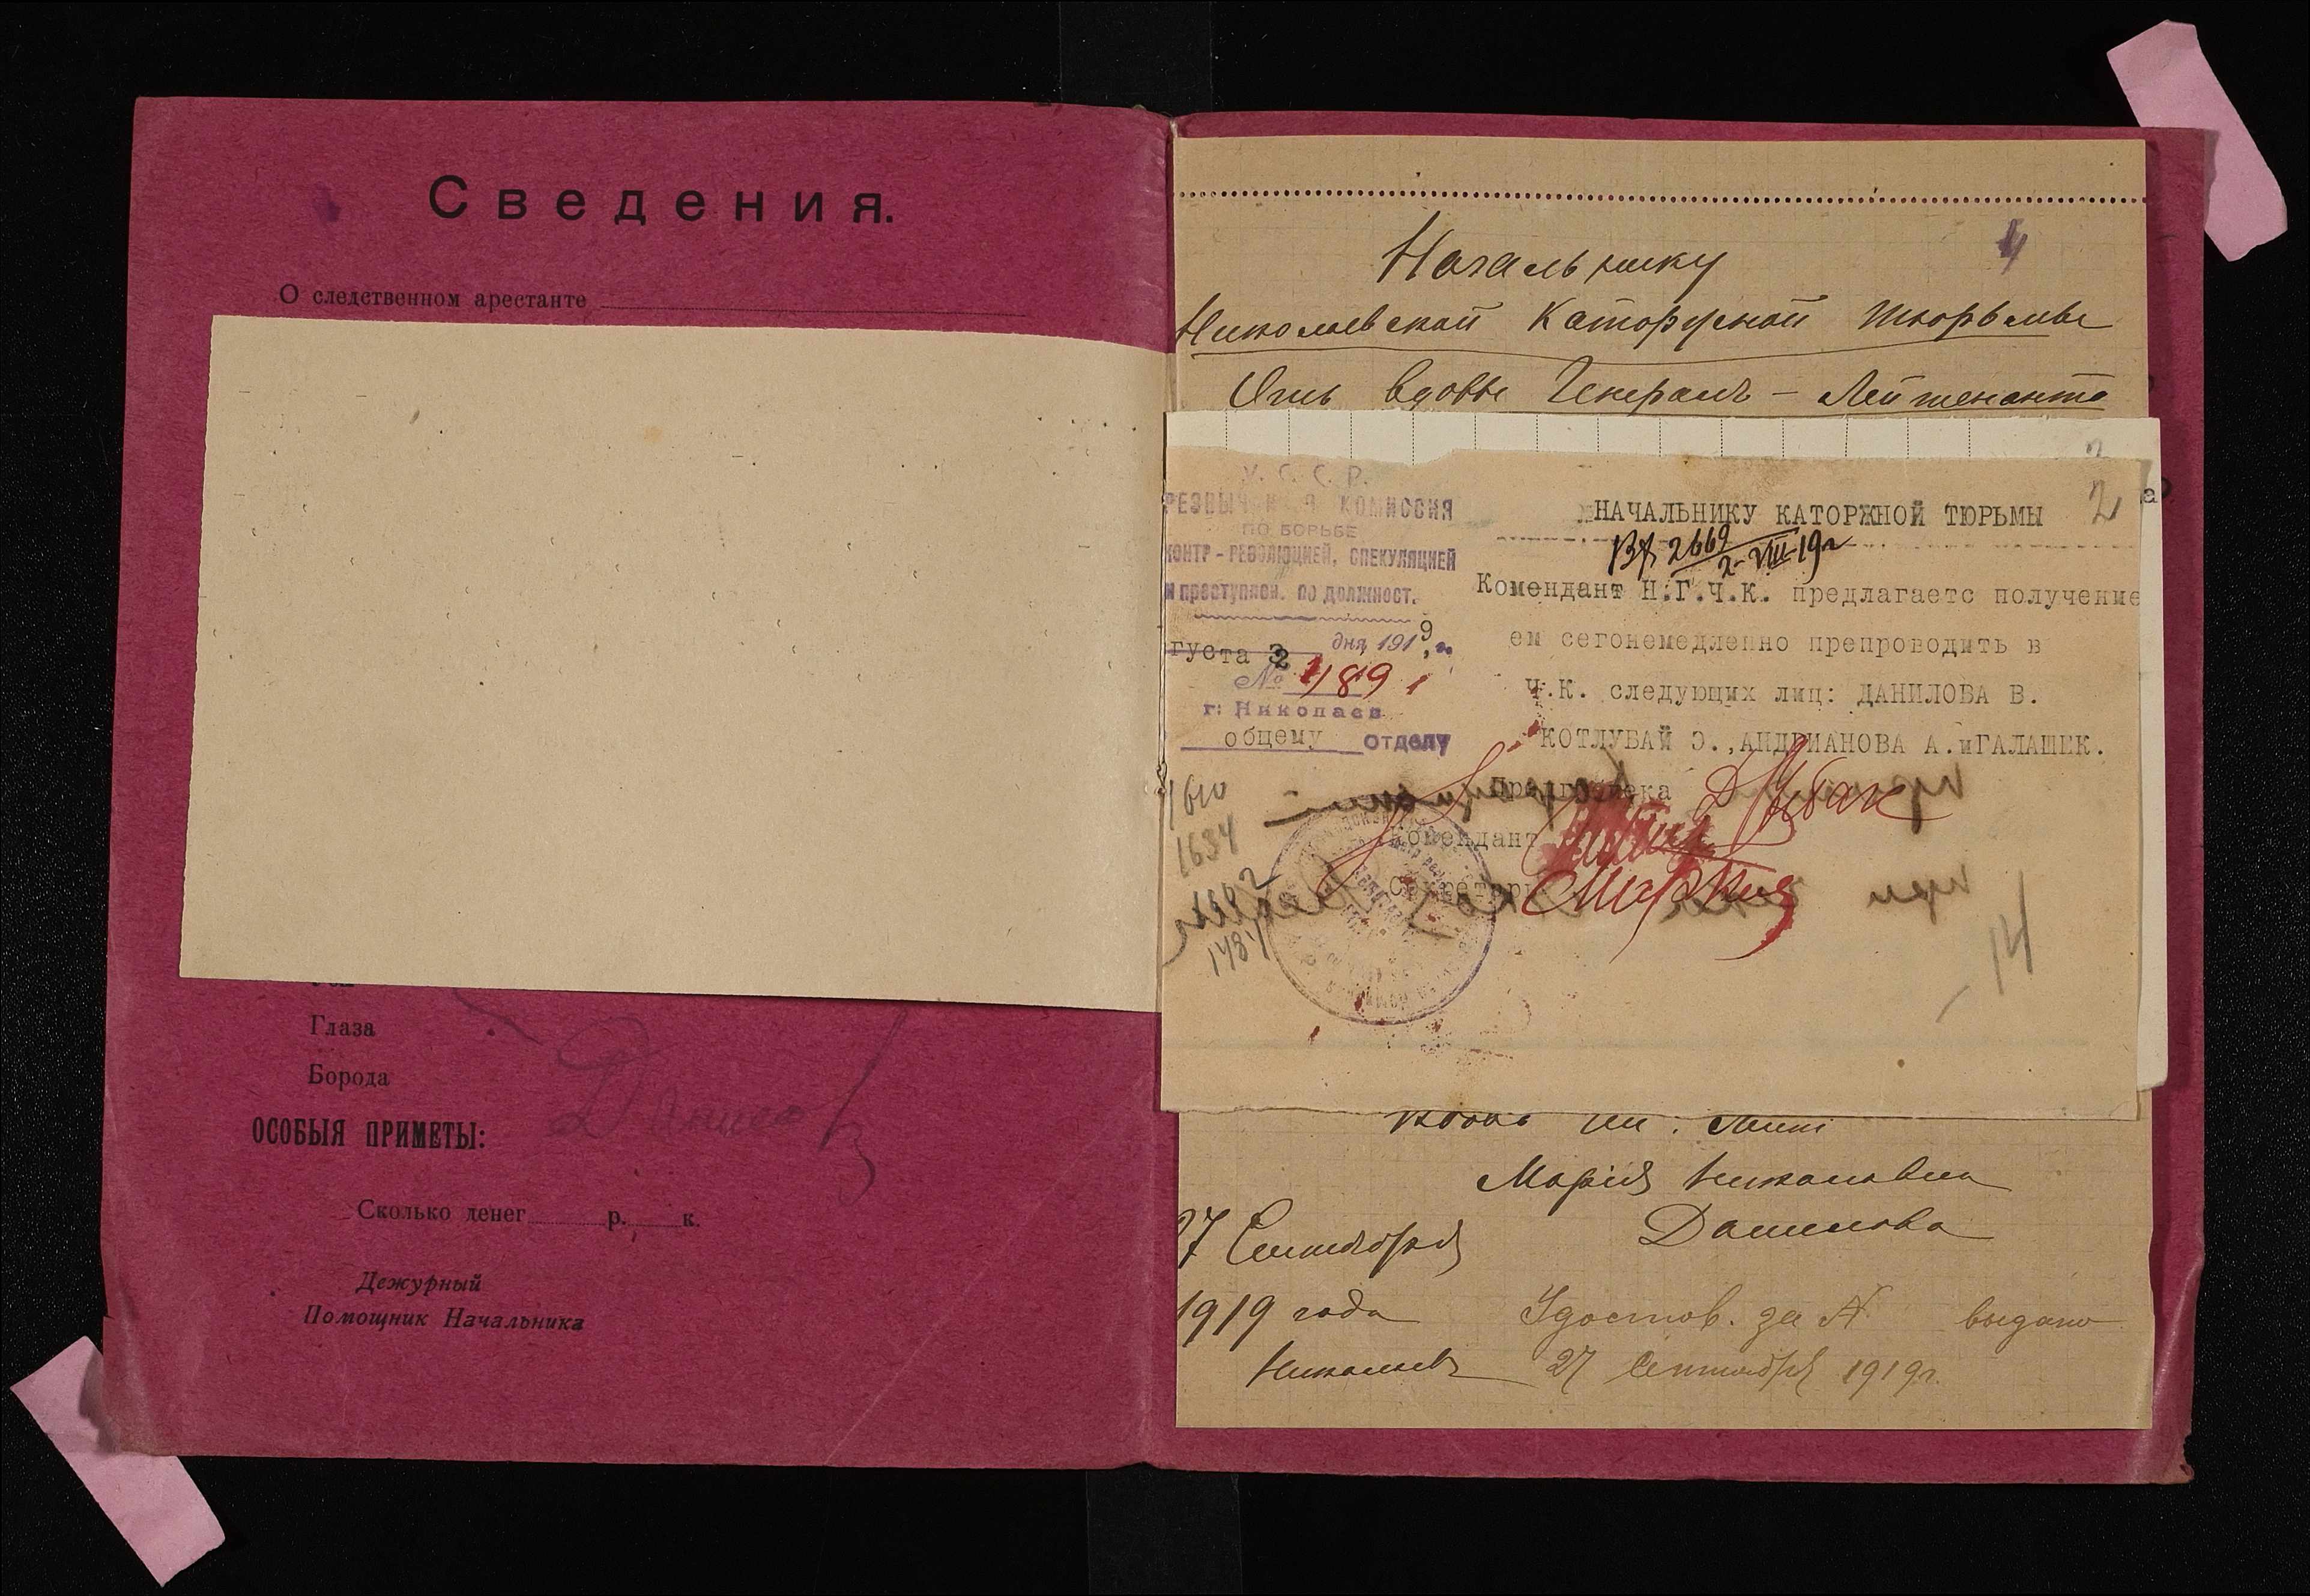 Сведения.
О следственном арестанте
Глаза
Борода
ОСОБЫЯ ПРИМЕТЫ:
Сколько денег р. к.
Дежурный
Помощник Начальника
4
Начальнику
Николаевской Каторжной тюрьмы
Отъ вдовы Генералъ-Лейтенанта
У.С.С.Р.
КОМИССИЯ
ПО БОРЬБЕ
КОНТР-РЕВОЛЮЦИЕЙ, СПЕКУЛЯЦИЕЙ
и преступлен. по должност.
густа 2 дня 1919 г.
№ 1891
г. Николаев
общему отделу
2
НАЧАЛЬНИКУ КАТОРЖНОЙ ТЮРЬМЫ
Вх 2669
2-VIII-19г
Комендант Н.Г.Ч.К. предлагаетс получение
ем сегонемедленно препроводить в
Ч.К. следующих лиц: ДАНИЛОВА В.
КОТЛУБАЙ Э.,АНДРИАНОВА А.иГАЛАШЕК.
Комендант
Секретарь
1634
14
Марія Николаевна
Данилова
27 Сентября
1919 года
Николаевъ
Удостов. за № выдано
27 Сентября 1919г.